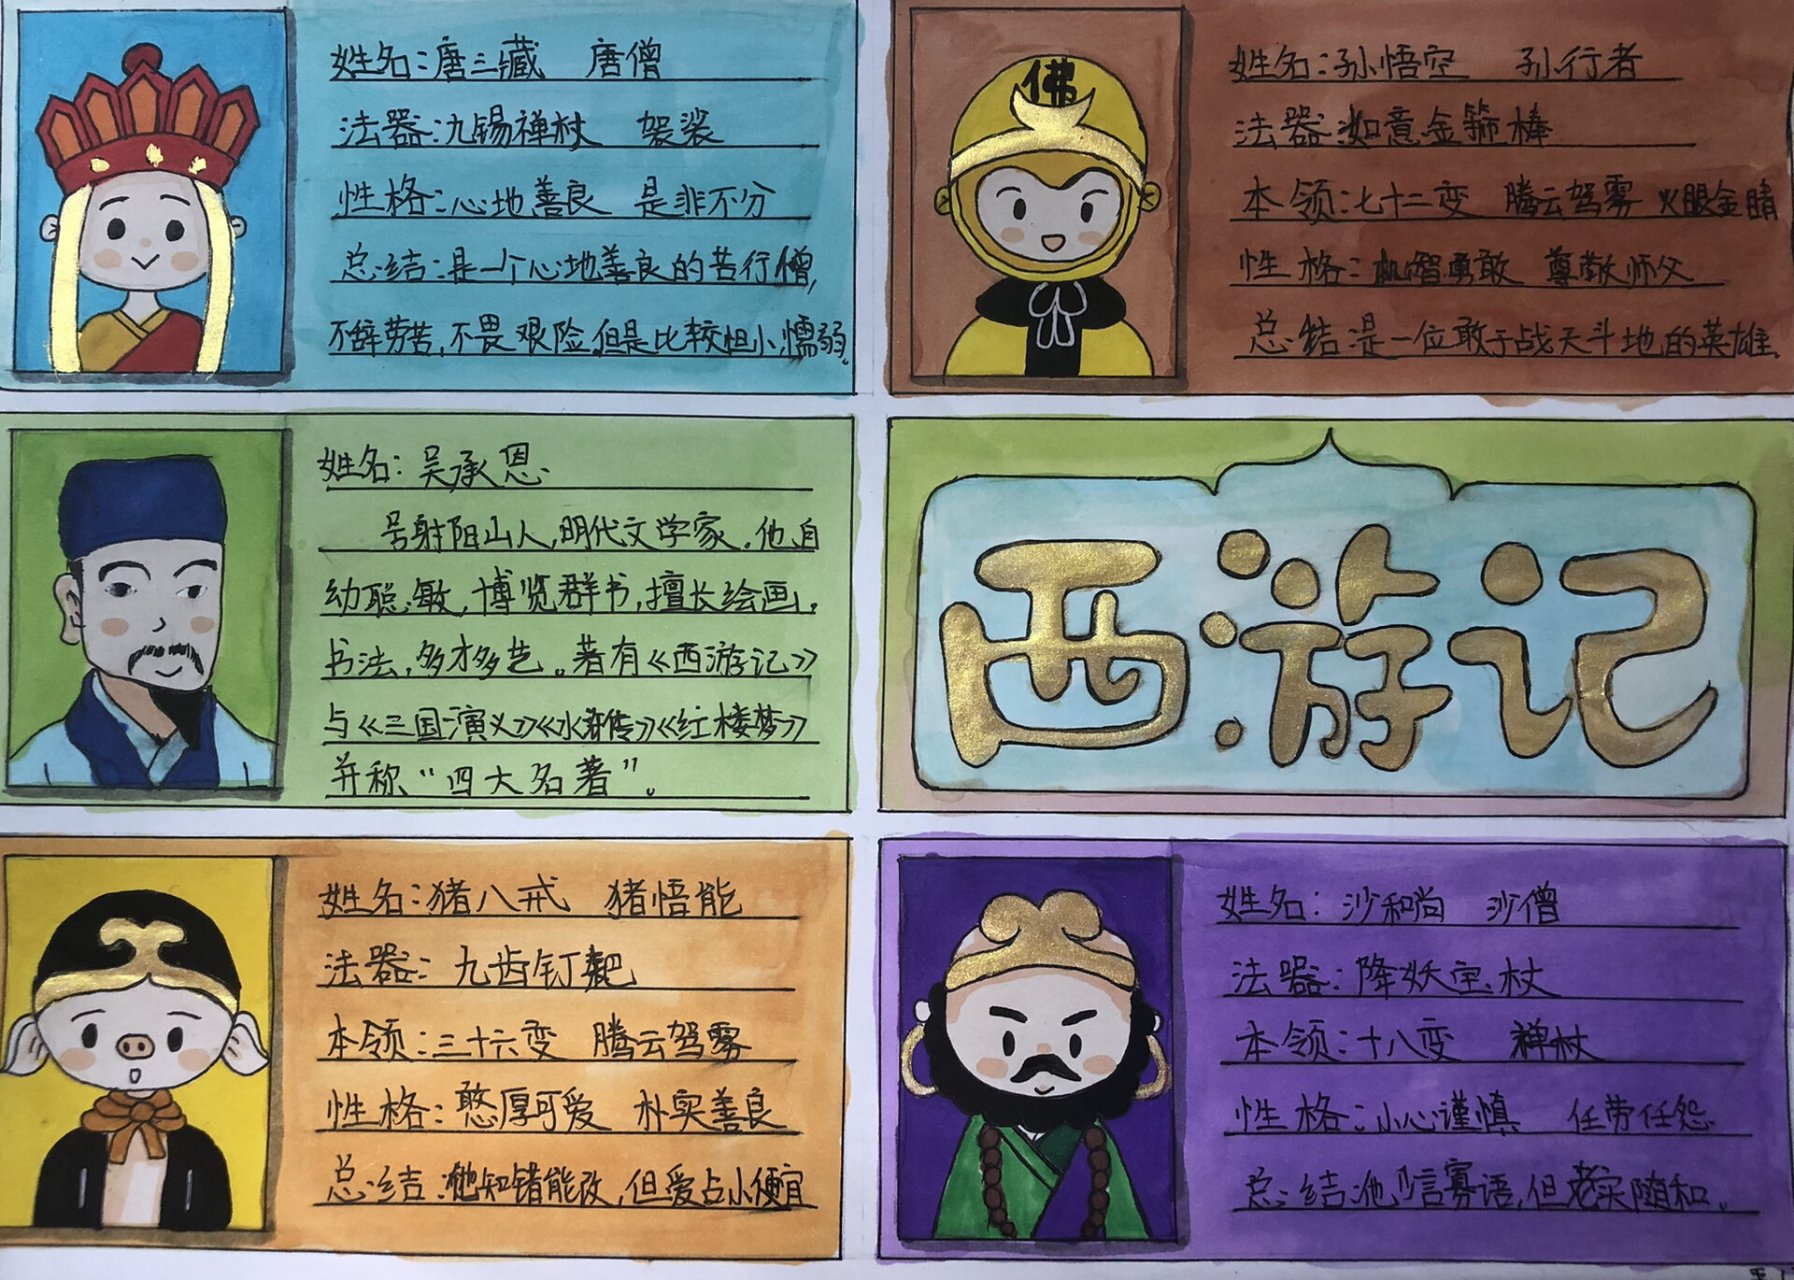 姓名:唐三藏 唐僧
法器:九锡禅杖 袈裟
性格:心地善良 是非不分
总结:是一个心地善良的苦行僧,
不辞劳苦,不畏艰险,但是比较怛小,懦弱.
佛
姓名:孙悟空 孙行者
法器:如意金箍棒
本领:七十二变 腾云驾雾 火眼金睛
性格:机智勇敢 尊敬师父
总结:是一位敢于战天斗地的英雄.
姓名:吴承恩.
号射阳山人,明代文学家.他自
幼聪敏,博览群书,擅长绘画,
书法,多才多艺。著有《西游记》
与《三国演义》《水浒传》《红楼梦》
并称“四大名著”。
西游记
姓名:猪八戒 猪悟能
法器:九齿钉耙
本领:三十六变 腾云驾雾
性格:憨厚可爱 朴实善良
总结:他知错能改,但爱占小便宜
姓名:沙和尚 沙僧
法器:降妖宝杖
本领:十八变 禅杖
性格:小心谨慎 任劳任怨
总结:他少言寡语,但老实随和。